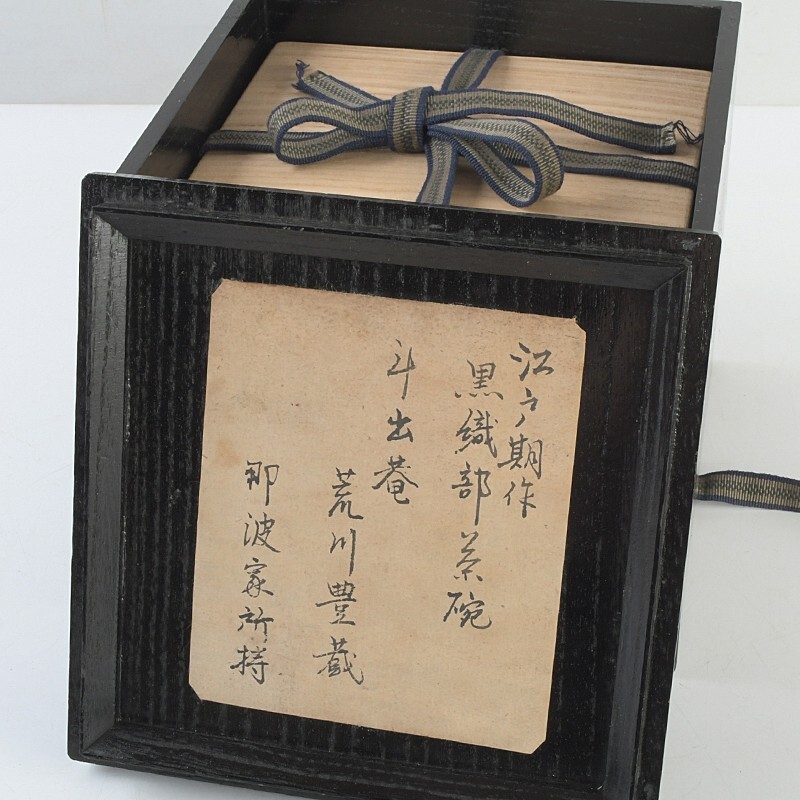 江戸期作
黒織部茶碗
斗出菴
荒川豊蔵
那波家所持